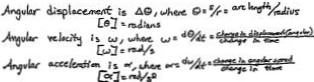 Angular displacement is Δθ, where θ = s/r = arc length/radius
[θ] = radians
Angular velocity is ω, where ω = dθ/dt = change in displacement (angular)/change in time
[ω] = rad/s
Angular acceleration is α, where α = dω/dt = change in angular speed/change in time
[α] = rad/s²